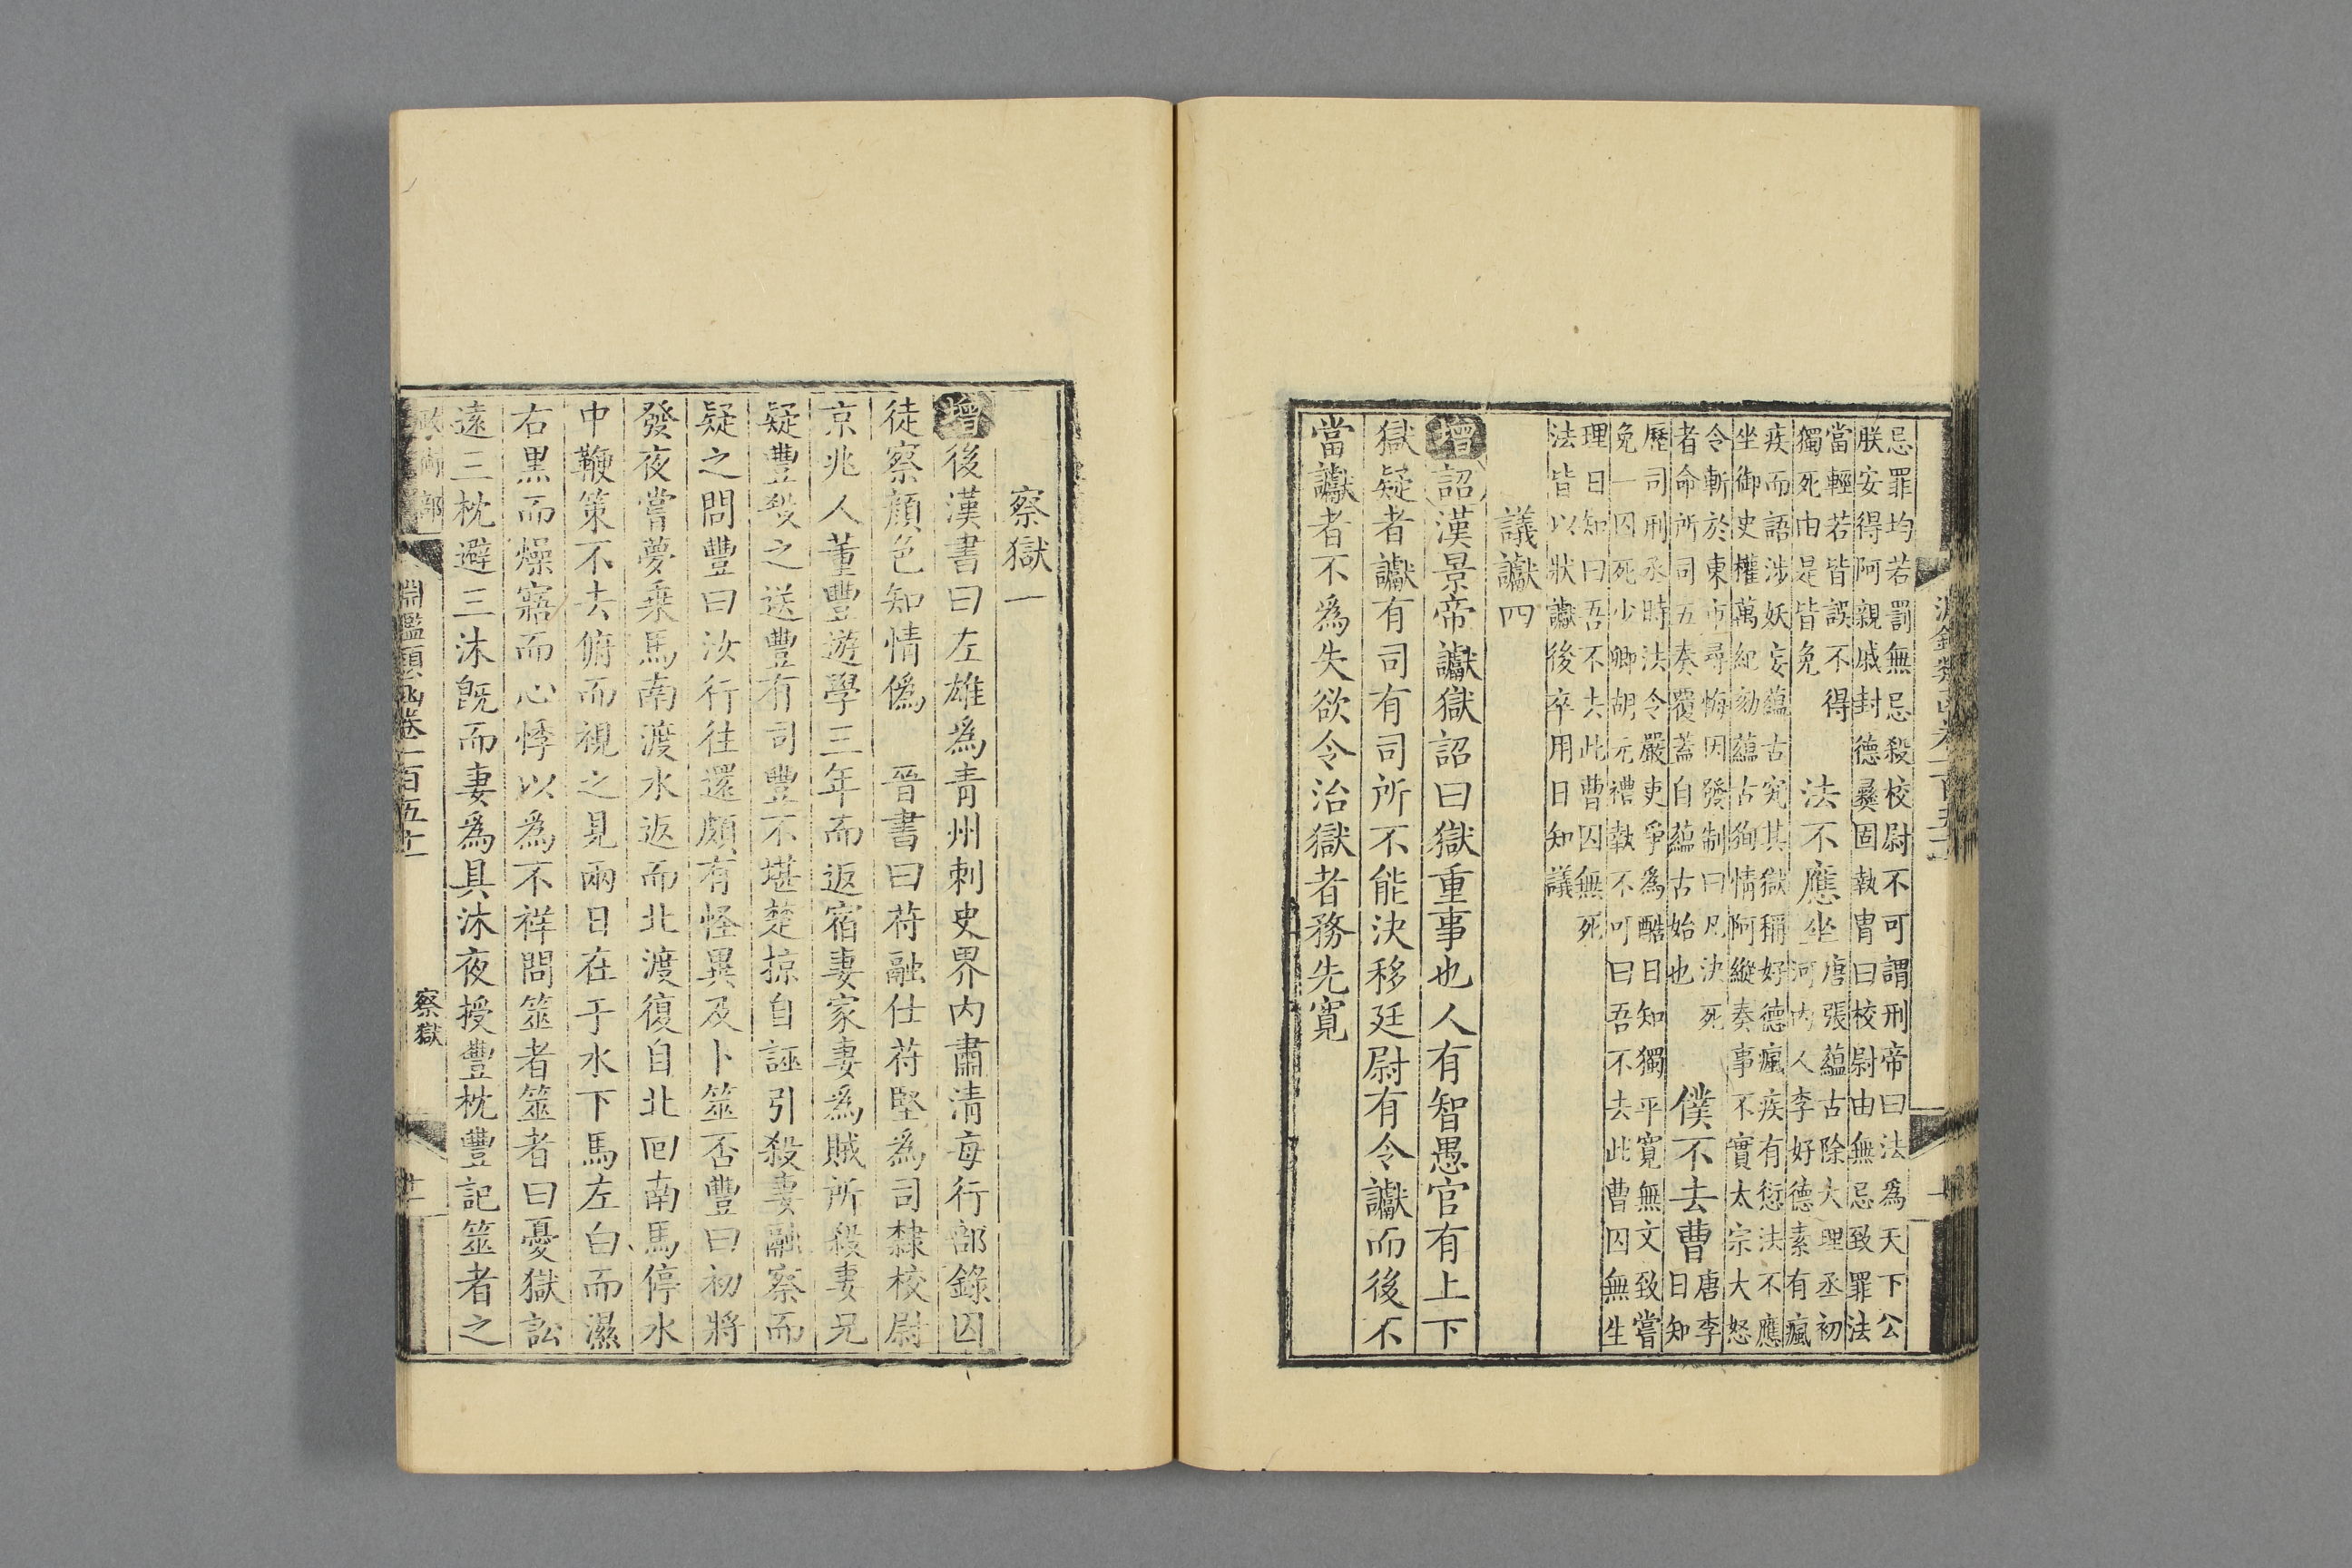 忌罪均若罰無忌殺校尉不可謂刑帝曰法為天下公
朕安得阿親戚封德彝固執胄曰校尉由無忌致罪法
當輕若皆誤不得
獨死由是皆免
法不應坐
唐張蘊古除大理丞初
河內人李好德素有瘋
疾而語涉妖妄蘊古究其獄稱好德瘋疾有衍法不應
坐御史權萬紀劾蘊古狥情阿縱奏事不實太宗大怒
令斬於東市尋悔因發制曰凡決死
者命所司五奏覆蓋自蘊古始也
僕不去曹
唐李
日知
歷司刑丞時法令嚴吏爭為酷日知獨平寬無文致嘗
免一囚死少卿胡元禮執不可曰吾不去此曹囚無生
理日知曰吾不去此曹囚無死
法皆以狀讞後卒用日知議
議讞四
增詔漢景帝讞獄詔曰獄重事也人有智愚官有上下
獄疑者讞有司有司所不能決移廷尉有令讞而後不
當讞者不爲失欲令治獄者務先寬
察獄一
增後漢書曰左雄爲青州刺史界內肅清每行部錄囚
徒察顏色知情僞　晉書曰苻融仕苻堅爲司隸校尉
京兆人董豐遊學三年而返宿妻家妻爲賊所殺妻兄
疑豐殺之送豐有司豐不堪楚掠自誣引殺妻融察而
疑之問豐曰汝行往還頗有怪異及卜筮否豐曰初將
發夜嘗夢乘馬南渡水返而北渡復自北囘南馬停水
中鞭策不去俯而視之見兩日在于水下馬左白而濕
右黑而燥寤而心悸以爲不祥問筮者筮者曰憂獄訟
遠三枕避三沐旣而妻爲具沐夜授豐枕豐記筮者之
政術部
淵鑑類函卷一百五十
察獄